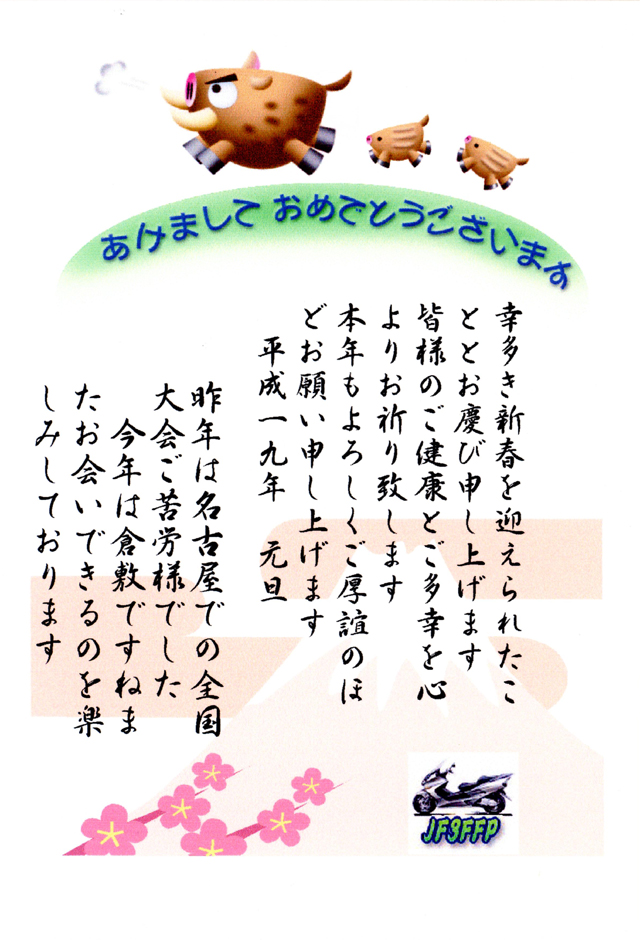 あけまして おめでとうございます
幸多き新春を迎えられたこ
ととお慶び申し上げます
皆様のご健康とご多幸を心
よりお祈り致します
本年もよろしくご厚誼のほ
どお願い申し上げます
平成一九年 元旦
昨年は名古屋での全国
大会ご苦労様でした
今年は倉敷ですねま
たお会いできるのを楽
しみしております
JF9FFP